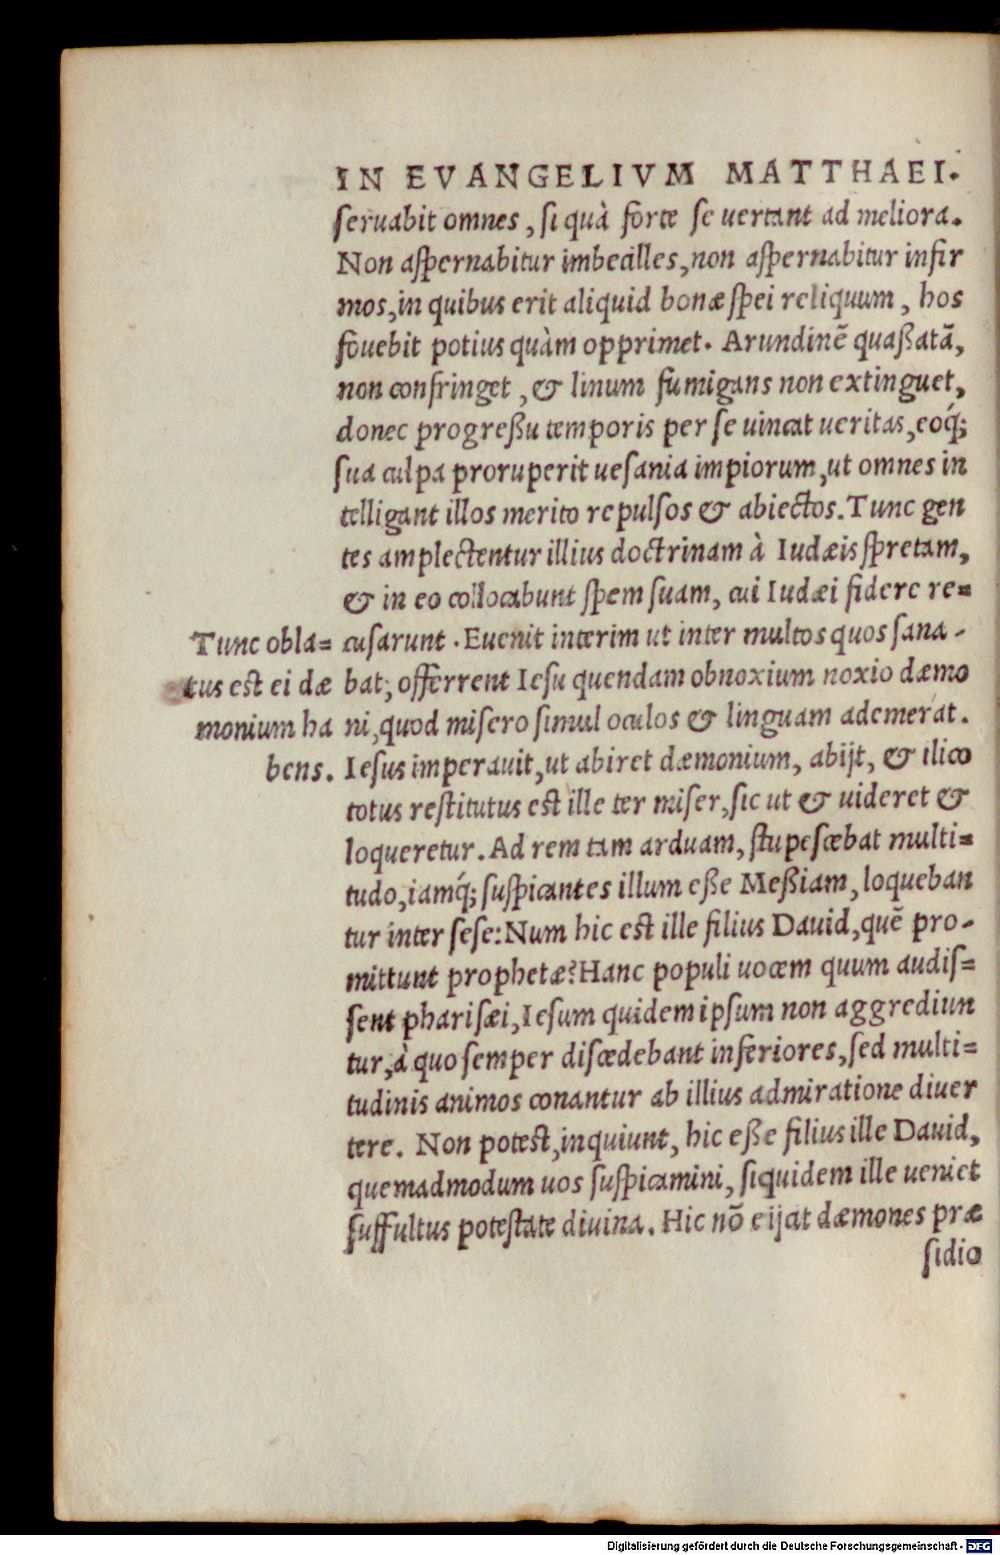 IN EVANGELIVM MATTHAEI.
ſeruabit omnes, ſi quà forte ſe uertant ad meliora.
Non aſpernabitur imbecilles, non aſpernabitur infir
mos, in quibus erit aliquid bonæ ſpei reliquum, hos
fouebit potius quàm opprimet. Arundinē quaßatā,
non confringet, & linum fumigans non extinguet,
donec progreßu temporis per ſe uincat ueritas, eoq́;
ſua culpa proruperit ueſania impiorum, ut omnes in
telligant illos merito repulſos & abiectos. Tunc gen
tes amplectentur illius doctrinam à Iudæis ſpretam,
& in eo collocabunt ſpem ſuam, cui Iudæi fidere re=
cuſarunt. Euenit interim ut inter multos quos ſana-
bat; offerrent Ieſu quendam obnoxium noxio dæmo
ni, quod miſero ſimul oculos & linguam ademerat.
Ieſus imperauit, ut abiret dæmonium, abijt, & ilico
totus reſtitutus est ille ter miſer, ſic ut & uideret &
loqueretur. Ad rem tam arduam, ſtupeſcebat multi=
tudo, iamq́; ſuſpicantes illum eße Meßiam, loqueban
tur inter ſeſe: Num hic est ille filius Dauid, quē pro-
mittunt prophetæ? Hanc populi uocem quum audiſ=
ſent phariſæi, Ieſum quidem ipſum non aggrediun
tur, à quo ſemper diſcedebant inferiores, ſed multi=
tudinis animos conantur ab illius admiratione diuer
tere. Non potest, inquiunt, hic eße filius ille Dauid,
quemadmodum uos ſuſpicamini, ſiquidem ille ueniet
ſuffultus poteſtate diuina. Hic nō eijcit dæmones præ
ſidio
Tunc obla=
tus est ei dæ
monium ha
bens.
Digitalisierung gefördert durch die Deutsche Forschungsgemeinschaft - DFG